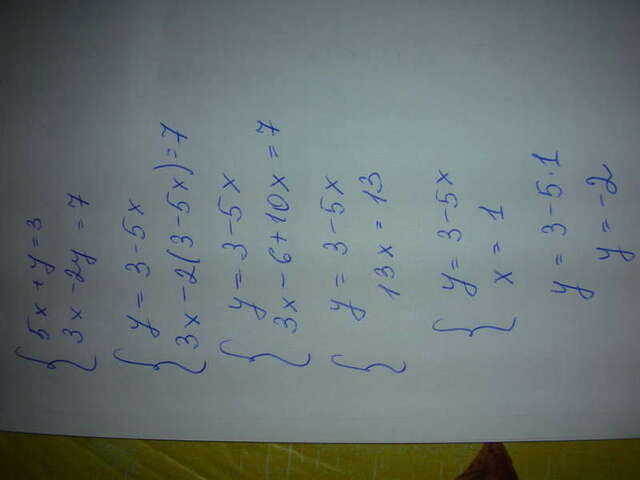 { 5x + y = 3
3x - 2y = 7
{ y = 3 - 5x
3x - 2(3 - 5x) = 7
{ y = 3 - 5x
3x - 6 + 10x = 7
{ y = 3 - 5x
13x = 13
{ y = 3 - 5x
x = 1
y = 3 - 5·1
y = -2